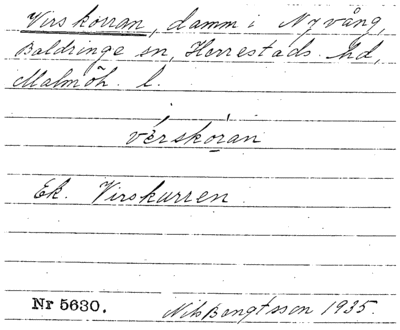 Virskorran, damm i Nyvång,
Baldringe sn, Herrestads hd,
Malmöh. l.
vérskòran
Ek. Virskurren
Nr 5630. Nils Bengtsson 1935.